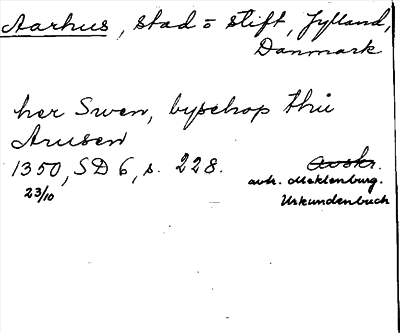 Aarhus, stad = stift, Jylland,
Danmark
her Swen, byschop thu
Arusen
1350, SD 6, s. 228.
23/10
avskr.
avtr. Meklenburg.
Urkundenbuch